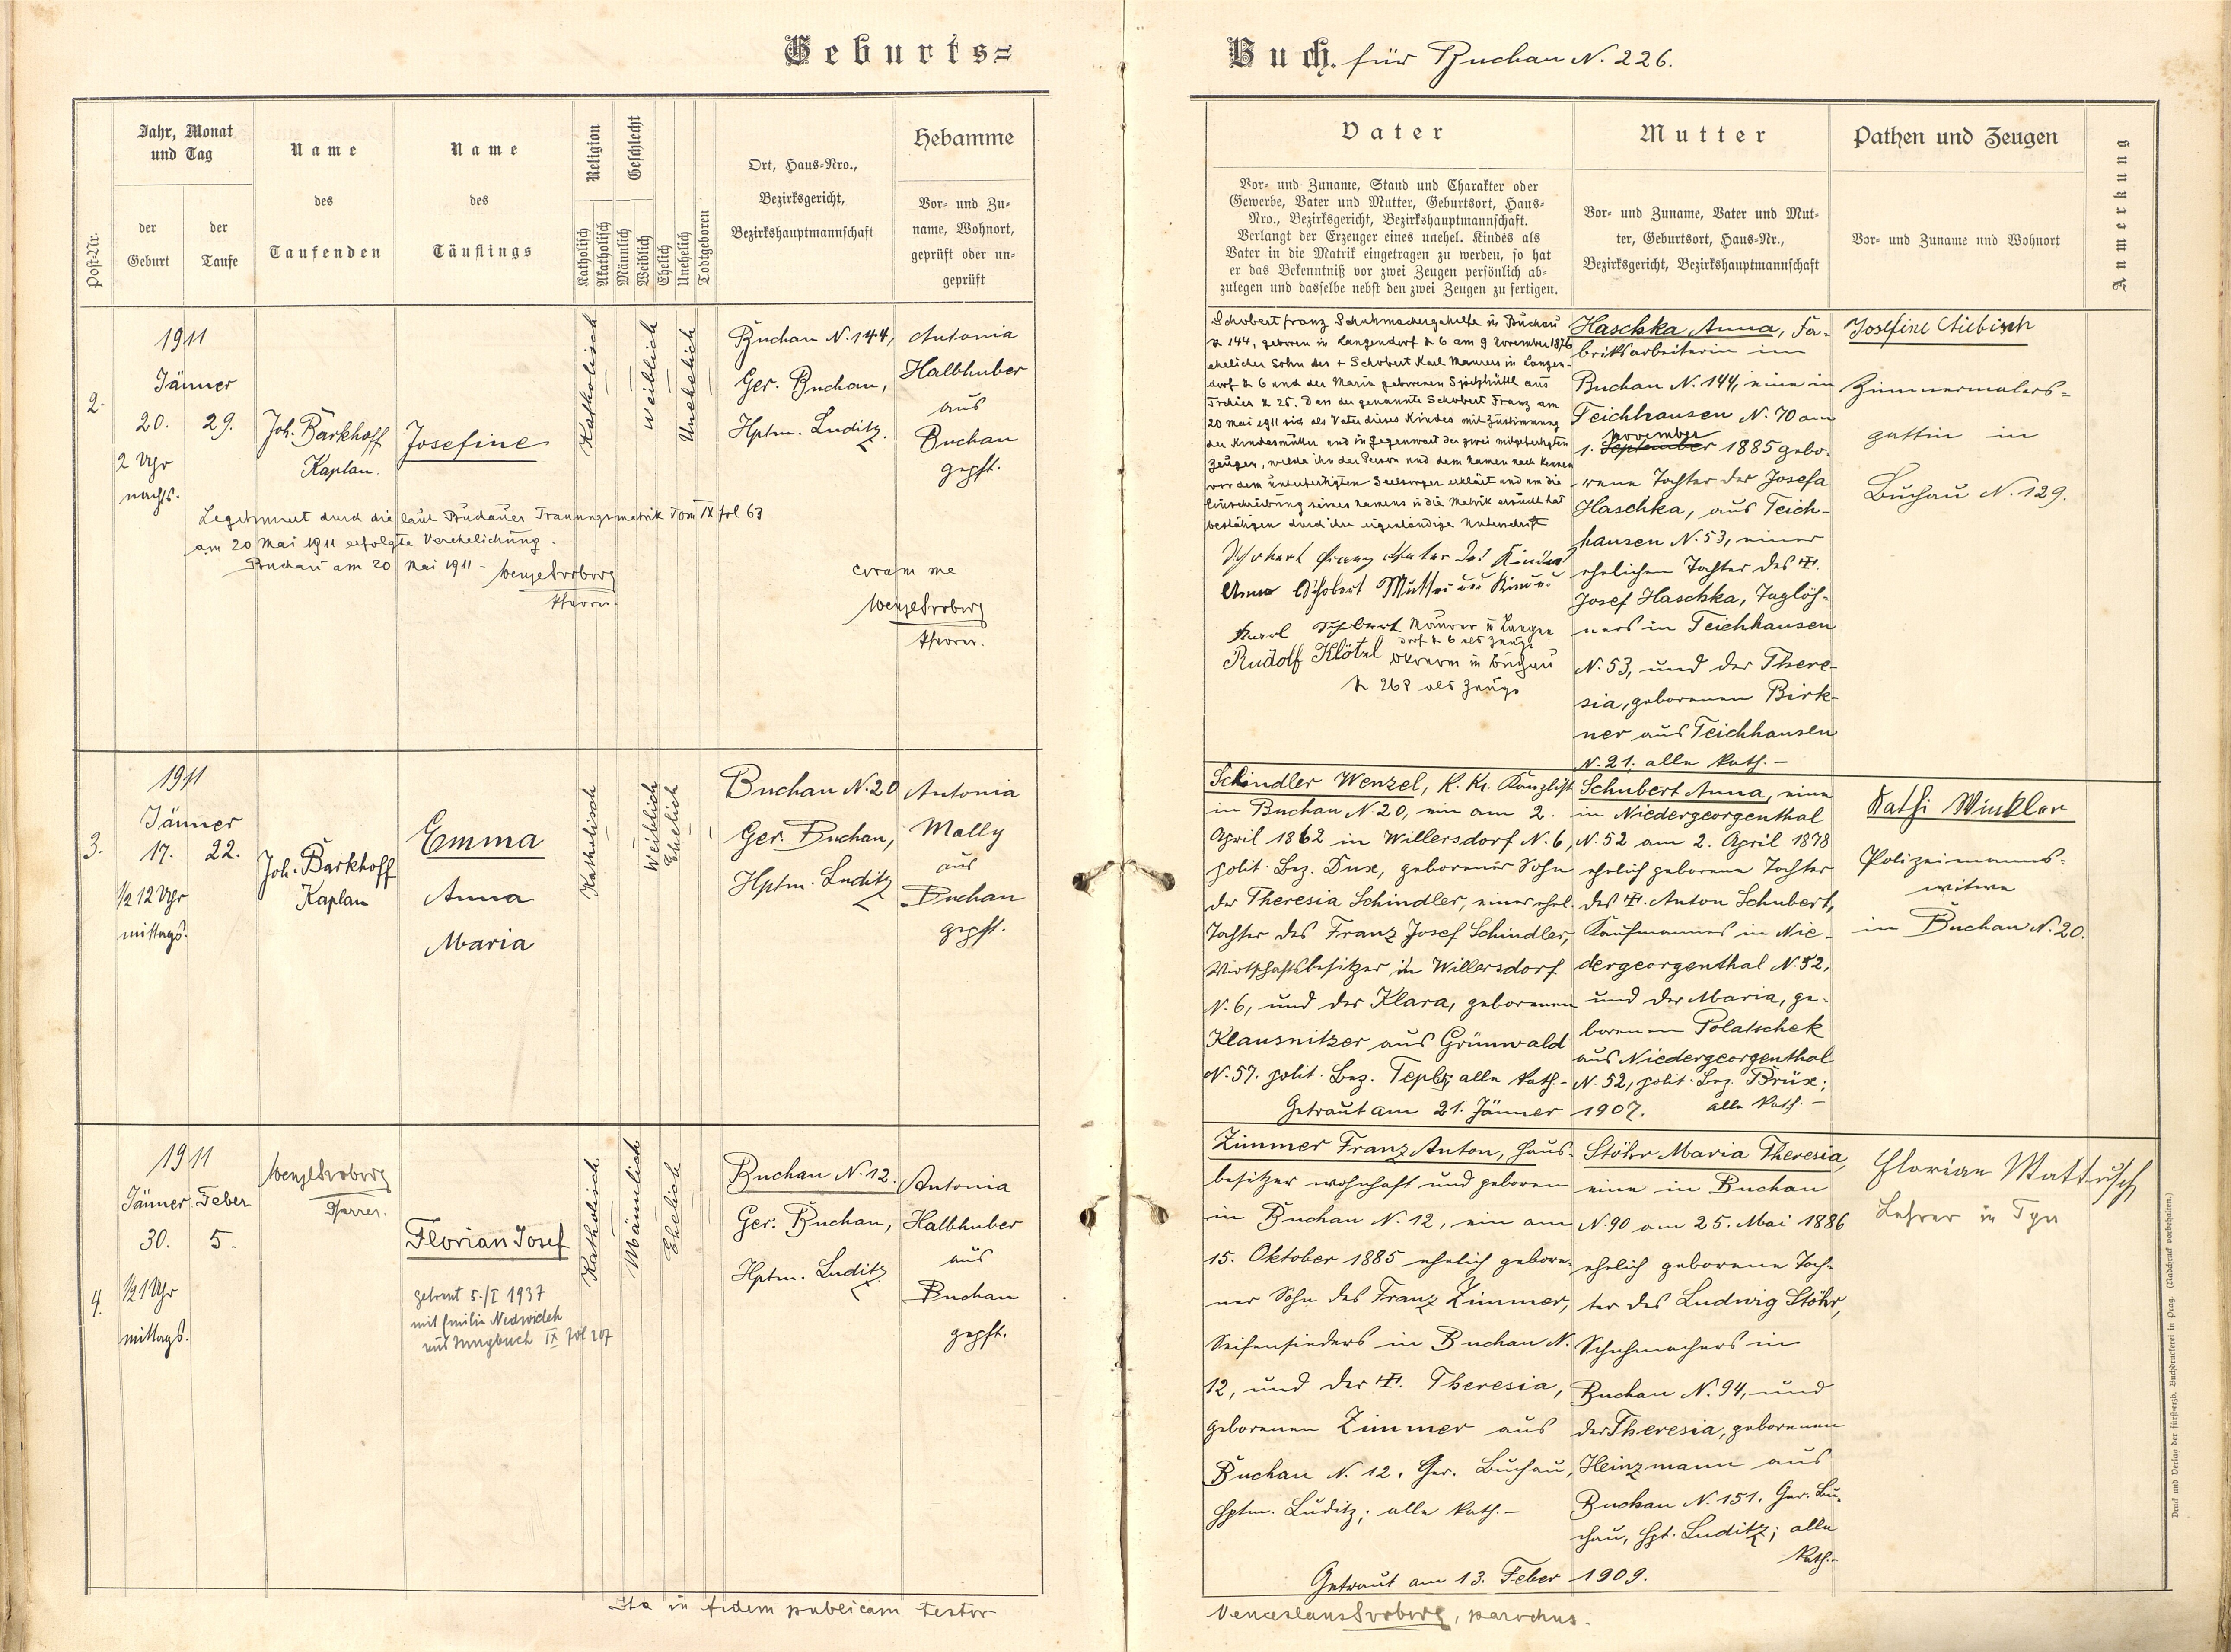 Geburts=
Post-Nr.
Jahr, Monat
und Tag
der
Geburt
der
Taufe
Name
des
Taufenden
Name
des
Täuflings
Religion
Katholisch
Akatholisch
Geschlecht
Männlich
Weiblich
Ehelich
Unehelich
Todtgeboren
Ort, Haus=Nro.,
Bezirksgericht,
Bezirkshauptmannschaft
Hebamme
Vor= und Zu=
name, Wohnort,
geprüft oder un=
geprüft
2.
1911
Jänner
20. 29.
2 Uhr
nachts.
Joh. Barkhoff
Kaplan.
Josefine
Katholisch
Weiblich
Unehelich
Buchau N. 144,
Ger. Buchau,
Hptm. Luditz.
Antonia
Halbhuber
aus
Buchau
gepft.
Legitimiert durch die laut Buchauer Trauungsmatrik Tom IX fol 63
am 20 Mai 1911 erfolgte Verehelichung.
Buchau am 20 Mai 1911 -
Pfarrer.
coram me
Pfarrer.
3.
1911
Jänner
17. 22.
1/2 12 Uhr
mittags.
Joh. Barkhoff
Kaplan
Emma
Anna
Maria
Katholisch
Weiblich
Ehelich
Buchau N. 20
Ger. Buchau,
Hptm. Luditz
Antonia
Mally
aus
Buchau
gepft.
4.
1911
Jänner Feber
30. 5.
1/2 1 Uhr
mittags.
Pfarrer.
Florian Josef
getraut 5./I 1937
mit Emilie
aus Jungbuch IX fol 207
Katholisch
Männlich
Ehelich
Buchau N. 12.
Ger. Buchau,
Hptm. Luditz
Antonia
Halbhuber
aus
Buchau
gepft.
Ita in fidem publicam testor
Buch. für Buchau N. 226.
Vater
Vor= und Zuname, Stand und Charakter oder
Gewerbe, Vater und Mutter, Geburtsort, Haus=
Nro., Bezirksgericht, Bezirkshauptmannschaft.
Verlangt der Erzeuger eines unehel. Kindes als
Vater in die Matrik eingetragen zu werden, so hat
er das Bekenntniß vor zwei Zeugen persönlich ab=
zulegen und dasselbe nebst den zwei Zeugen zu fertigen.
Mutter
Vor= und Zuname, Vater und Mut=
ter, Geburtsort, Haus=Nr.,
Bezirksgericht, Bezirkshauptmannschaft
Pathen und Zeugen
Vor= und Zuname und Wohnort
Anmerkung
Schobert Franz Schuhmachergehilfe in Buchau
N 144, geboren in Langendorf N 6 am 9 November 1876
ehelicher Sohn des + Schobert Karl Maurers in Langen-
dorf N 6 und der Maria geborenen aus
N 25. Dass der genannte Schobert Franz am
20 Mai 1911 sich als Vater dieses Kindes mit Zustimmung
der Kindesmutter und in Gegenwart der zwei mitgefertigten
Zeugen, welche ihn der Person und dem Namen nach kennen
vor dem unterfertigten Seelsorger erklärt und um die
Einschreibung seines Namens in die Matrik ersucht hat
bestätigen durch ihre eigenhändige Unterschrift
Schobert Franz Vater des Kindes
Anna Schobert Mutter des Kindes
Karl Schobert Maurer in Langen
dorf N 6 als Zeuge
Rudolf Klötzl in Buchau
N 268 als Zeuge
Haschka Anna, Fa-
briksarbeiterin in
Buchau N. 144, eine in
Teichhausen N. 70 am
November
1. September 1885 gebo-
rene Tochter der Josefa
Haschka, aus Teich-
hausen N. 53, einer
ehelichen Tochter des +.
Josef Haschka, Taglöh-
ners in Teichhausen
N. 53, und der There-
sia, geborenen Birk-
ner aus Teichhausen
N. 21; alle kath. -
Josefine
Zimmermalers-
gattin in
Buchau N. 129.
Schindler Wenzel, K. K. Kanzlist
in Buchau N 20, ein am 2.
April 1862 in Willersdorf N. 6,
polit. Bez. Dux, geborener Sohn
der Theresia Schindler, einer ehel.
Tochter des Franz Josef Schindler,
Wirtschaftsbesitzer in Willersdorf
N. 6, und der Klara, geborenen
Klausnitzer aus Grünwald
N. 57. polit. Bez. Teplitz; alle kath. -
Getraut am 21. Jänner 1907.
Schubert Anna, eine
in Niedergeorgenthal
N. 52 am 2. April 1878
ehelich geborene Tochter
des +. Anton Schubert,
Kaufmannes in Nie-
dergeorgenthal N. 52,
und der Maria, ge-
borenen Polatschek
aus Niedergeorgenthal
N. 52, polit. Bez. Brüx;
alle kath. -
Kathi Winkler
Polizeimanns-
witwe
in Buchau N. 20.
Zimmer Franz Anton, Haus-
besitzer wohnhaft und geboren
in Buchau N. 12, ein am
15. Oktober 1885 ehelich gebore-
ner Sohn des Franz Zimmer,
Seifensieders in Buchau N.
12, und der +. Theresia,
geborenen Zimmer aus
Buchau N. 12, Ger. Buchau,
Hptm. Luditz; alle kath. -
Getraut am 13. Feber 1909.
Stöhr Maria Theresia,
eine in Buchau
N. 90 am 25. Mai 1886
ehelich geborene Toch-
ter des Ludwig Stöhr,
Schuhmachers in
Buchau N. 94, und
der Theresia, geborenen
Heinzmann aus
Buchau N. 151, Ger. Bu-
chau, Hpt. Luditz; alle
kath. -
Florian Mattusch
Lehrer in
Venceslaus , parochus.
Druck und Verlag der fürsterzb. Buchdruckerei in Prag. (Nachdruck vorbehalten.)